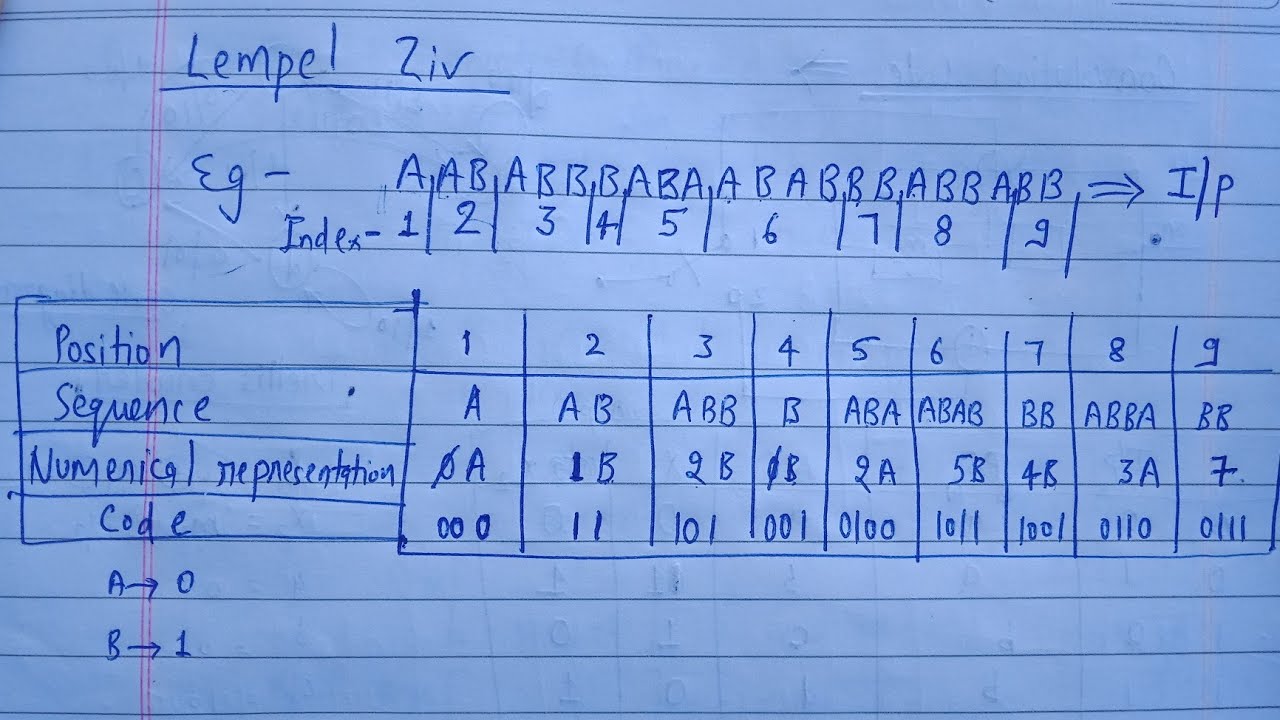 Lempel Ziv
Eg - A|AB|ABB|B|ABA|ABAB|BB|ABBA|BB| ⇒ I/p
Index- 1 | 2 | 3 |4| 5 | 6 |7| 8 | 9 |
Position 1 2 3 4 5 6 7 8 9
Sequence A AB ABB B ABA ABAB BB ABBA BB
Numerical representation ØA 1B 2B ØB 2A 5B 4B 3A 7
Code 000 11 101 001 0100 1011 1001 0110 0111
A→ 0
B→ 1